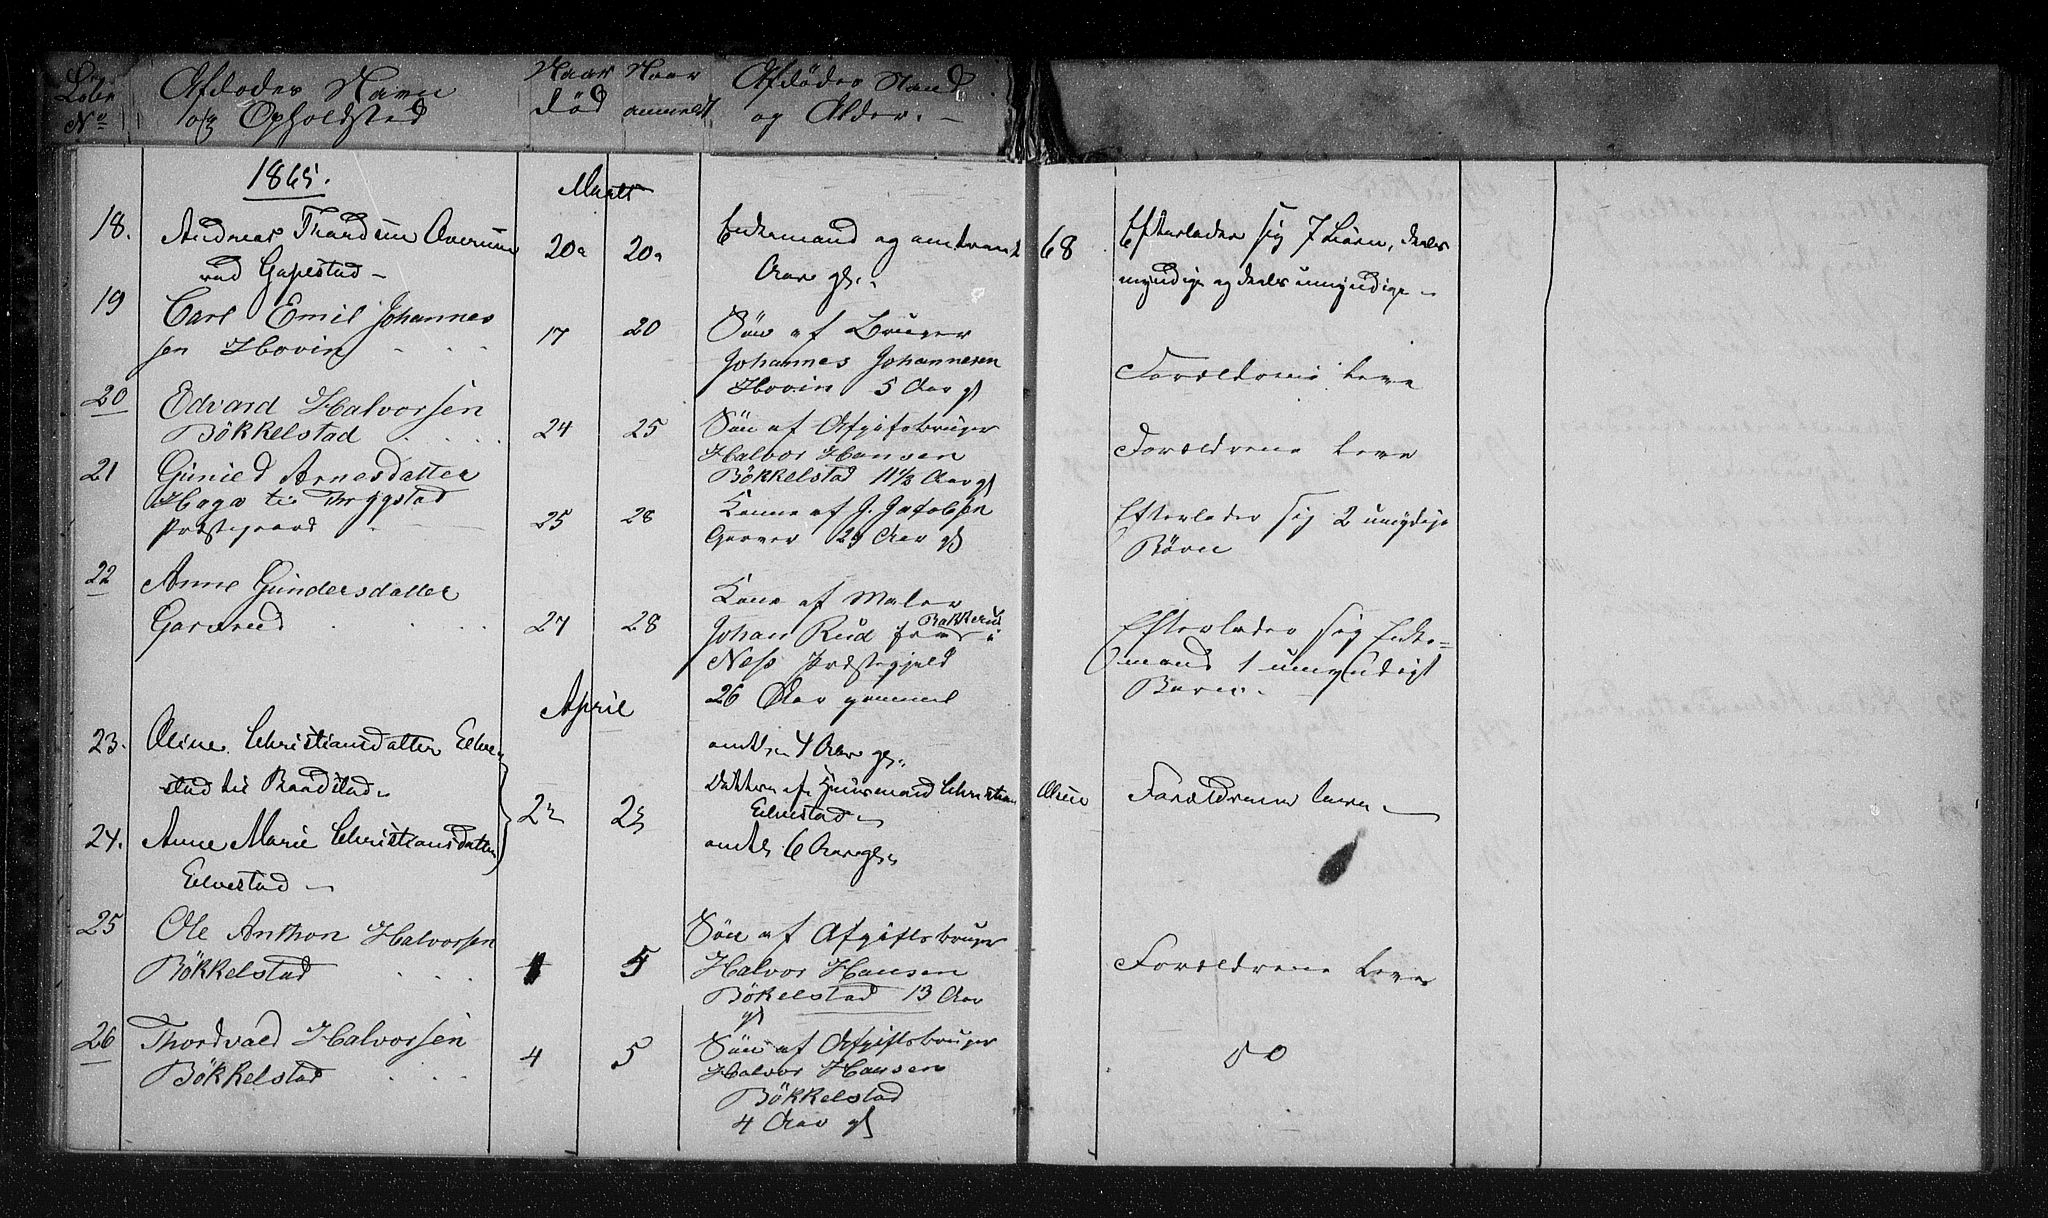 Løbe
No
Afdødes Navn
og Opholdsted
Naar
død
Naar
anmeldt
Afdødes Stand
og Alder.
1865.
Marts
18. Andreas Thordsen
Gapestad
20
20
Enkemand og omtrent 68
Aar gl.
Efterlader sig 7 Børn, deels
myndige og deels umyndige
19 Carl Emil Johannes
sen Hovin
17
20
Søn af Bruger
Johannes Johannesen
Hovin 5 Aar gl
Forældrene leve
20 Edvard Halvorsen
Bøkkelstad
24
25
Søn af Afgifsbruger
Halvor Hansen
Bøkkelstad 11½ Aar gl
Forældrene leve
21 Gunild Arnesdatter
Haga til Thrygstad
Præstegaard
25
28
Konne af J. Jacobsen
Garver 29 Aar gl
Efterlader sig 2 umydige
Børn
22 Anne Gundersdatter
Garsrud
27
28
Kone af Maler
Johan Rud fra Bakkerud i
Ness Præstegjeld
26 Aar gammel
Efterlader sig Enke-
mand 1 umyndigt
Barn.
April
23. Oline Christiansdatter Eilve
stad til Baadstad
24. Anne Marie Christiansdatter
Eilvestad
2
2
omtr. 4 Aar gl.
Døttre af Huusmand Christian Olsen
Eilvestad
omtr. 6 Aar gl.
Forældrene leve
25 Ole Anthon Halvorsen
Bøkkelstad
5
Søn af Afgiftsbruger
Halvor Hansen
Bøkelstad 13 Aar
gl
Forældrene leve
26 Thordvald Halvorsen
Bøkkelstad
4
5
Søn af Afgiftsbruger
Halvor Hansen
Bøkkelstad
4 Aar gl